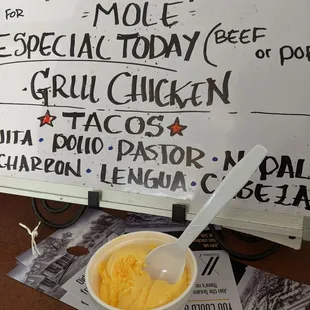 FOR MOLE
ESPECIAL TODAY (BEEF or POR
GRILL CHICKEN
★ TACOS ★
JITA · POLLO · PASTOR · NOPAL
CHARRON · LENGUA · CABEZA